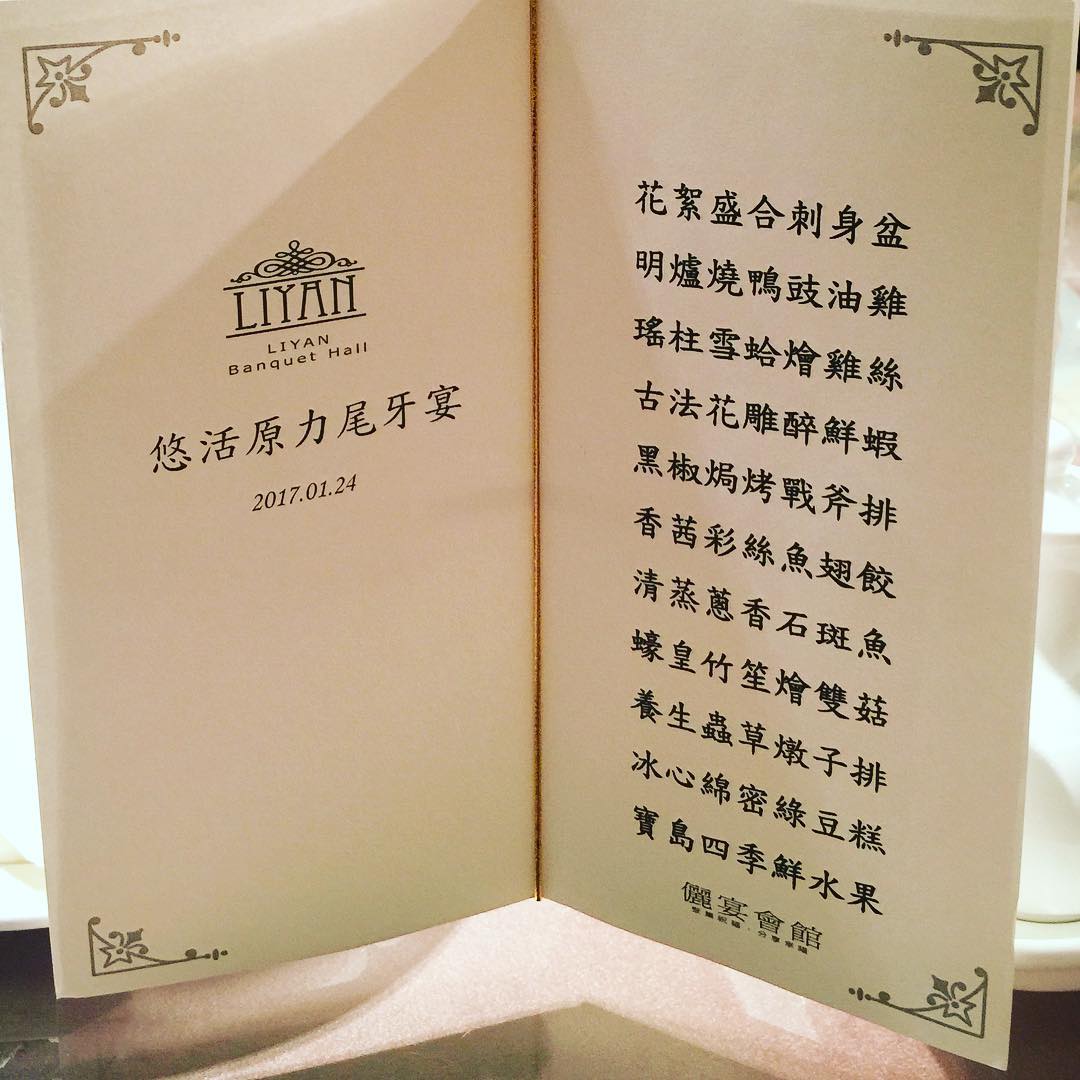 LIYAN
LIYAN
Banquet Hall
悠活原力尾牙宴
2017.01.24
花絮盛合刺身盆
明爐燒鴨豉油雞
瑤柱雪蛤燴雞絲
古法花雕醉鮮蝦
黑椒焗烤戰斧排
香茜彩絲魚翅餃
清蒸蔥香石斑魚
蠔皇竹笙燴雙菇
養生蟲草燉子排
冰心綿密綠豆糕
寶島四季鮮水果
儷宴會館
聚集祝福．分享幸福